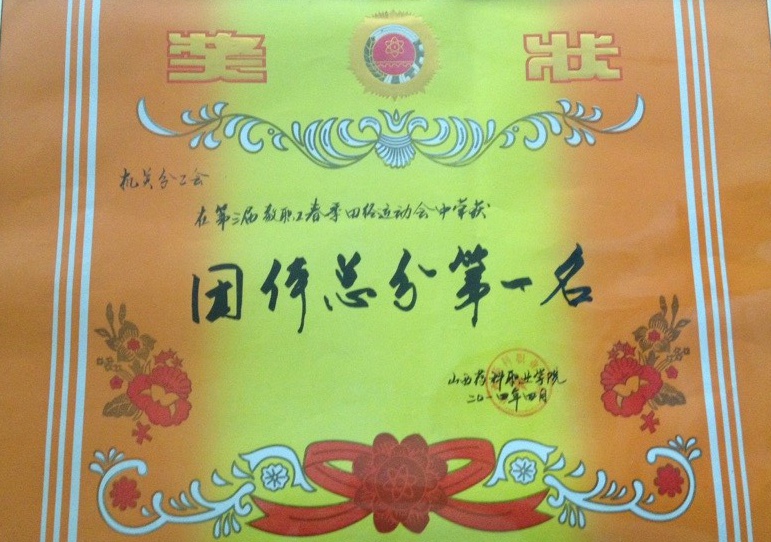 奖状
机关分工会
在第三届教职工春季田径运动会中荣获
团体总分第一名
山西药科职业学院
二〇一四年四月